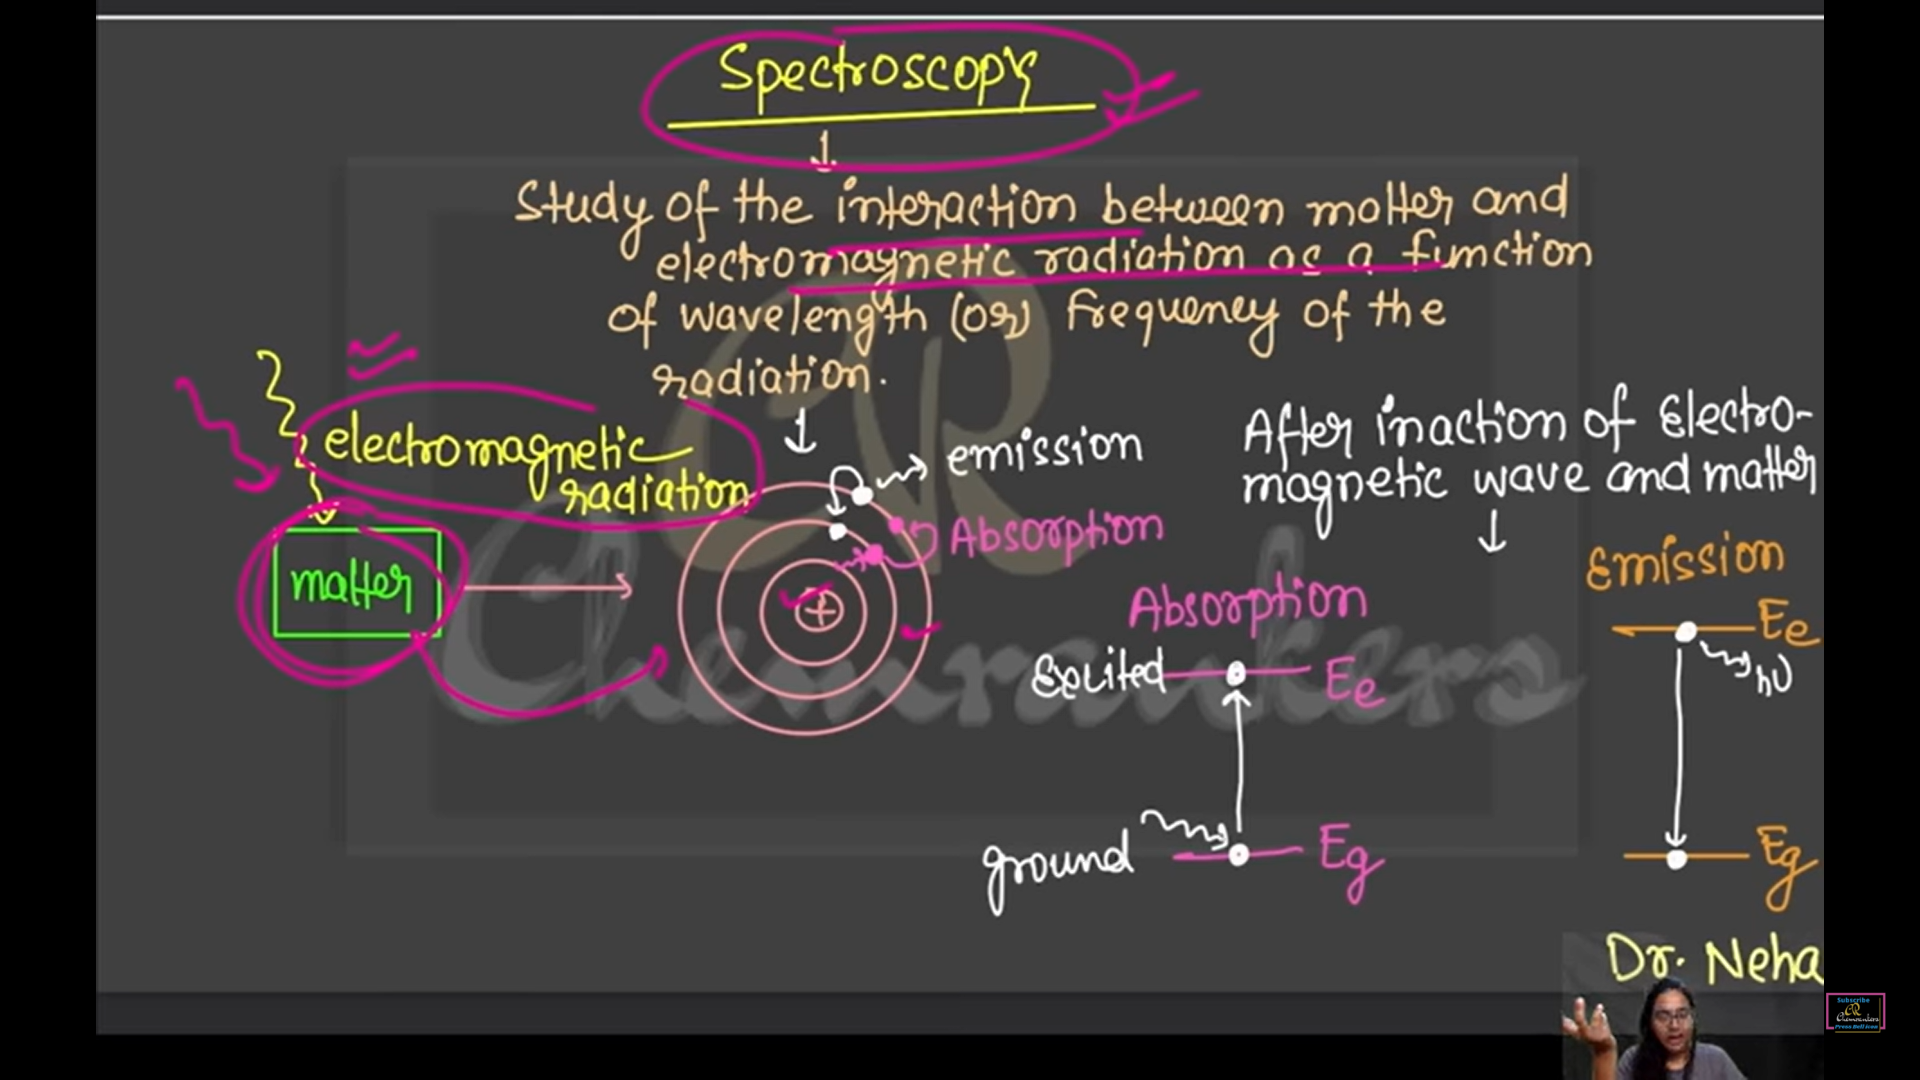 Spectroscopy
Study of the interaction between matter and
electromagnetic radiation as a function
of wavelength (or) frequency of the
radiation.
electromagnetic
radiation
matter
emission
Absorption
After inaction of Electro-
magnetic wave and matter
Absorption
Excited
Ee
ground
Eg
Emission
Ee
hν
Eg
Chemrankers
CR
Dr. Neha
Subscribe
CR
Chemrankers
Press Bell Icon